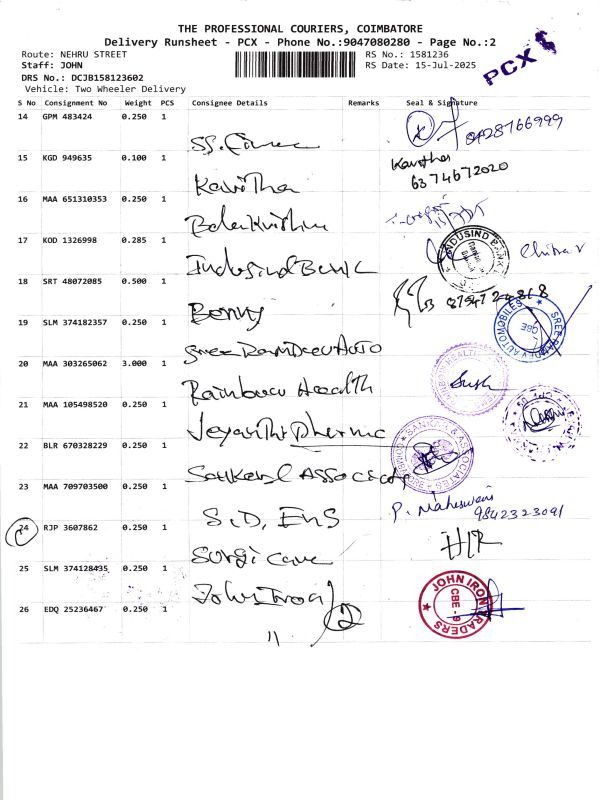 THE PROFESSIONAL COURIERS, COIMBATORE
Delivery Runsheet - PCX - Phone No.:9047080280 - Page No.:2
PCX
Route: NEHRU STREET
RS No.: 1581236
Staff: JOHN
RS Date: 15-Jul-2025
DRS No.: DCJB158123602
Vehicle: Two Wheeler Delivery
S No Consignment No Weight PCS Consignee Details Remarks Seal & Signature
14 GPM 483424 0.250 1
0428766999
15 KGD 949635 0.100 1
Kavitha
6374672020
Kavitha
16 MAA 651310353 0.250 1
Balakrishna
17 KOD 1326998 0.285 1
INDUSIND BANK
Chitra V
Indusind Bank
18 SRT 48072085 0.500 1
Benny
19 SLM 374182357 0.250 1
SREE RAMDEV AUTOMOBILES
CBE
Sree Ramdev Auto
20 MAA 303265062 3.000 1
Rainbow Health
21 MAA 105498520 0.250 1
Jeyanthi Pharma
22 BLR 670328229 0.250 1
SANKARL & ASSOCIATES
Sankaral Associate
23 MAA 709703500 0.250 1
P. Maheswari
9842323091
S.D. ENS
24 RJP 3607862 0.250 1
Surgi Care
25 SLM 374128435 0.250 1
John Iron
JOHN IRON TRADERS
CBE - 9
26 EDQ 25236467 0.250 1
2
"